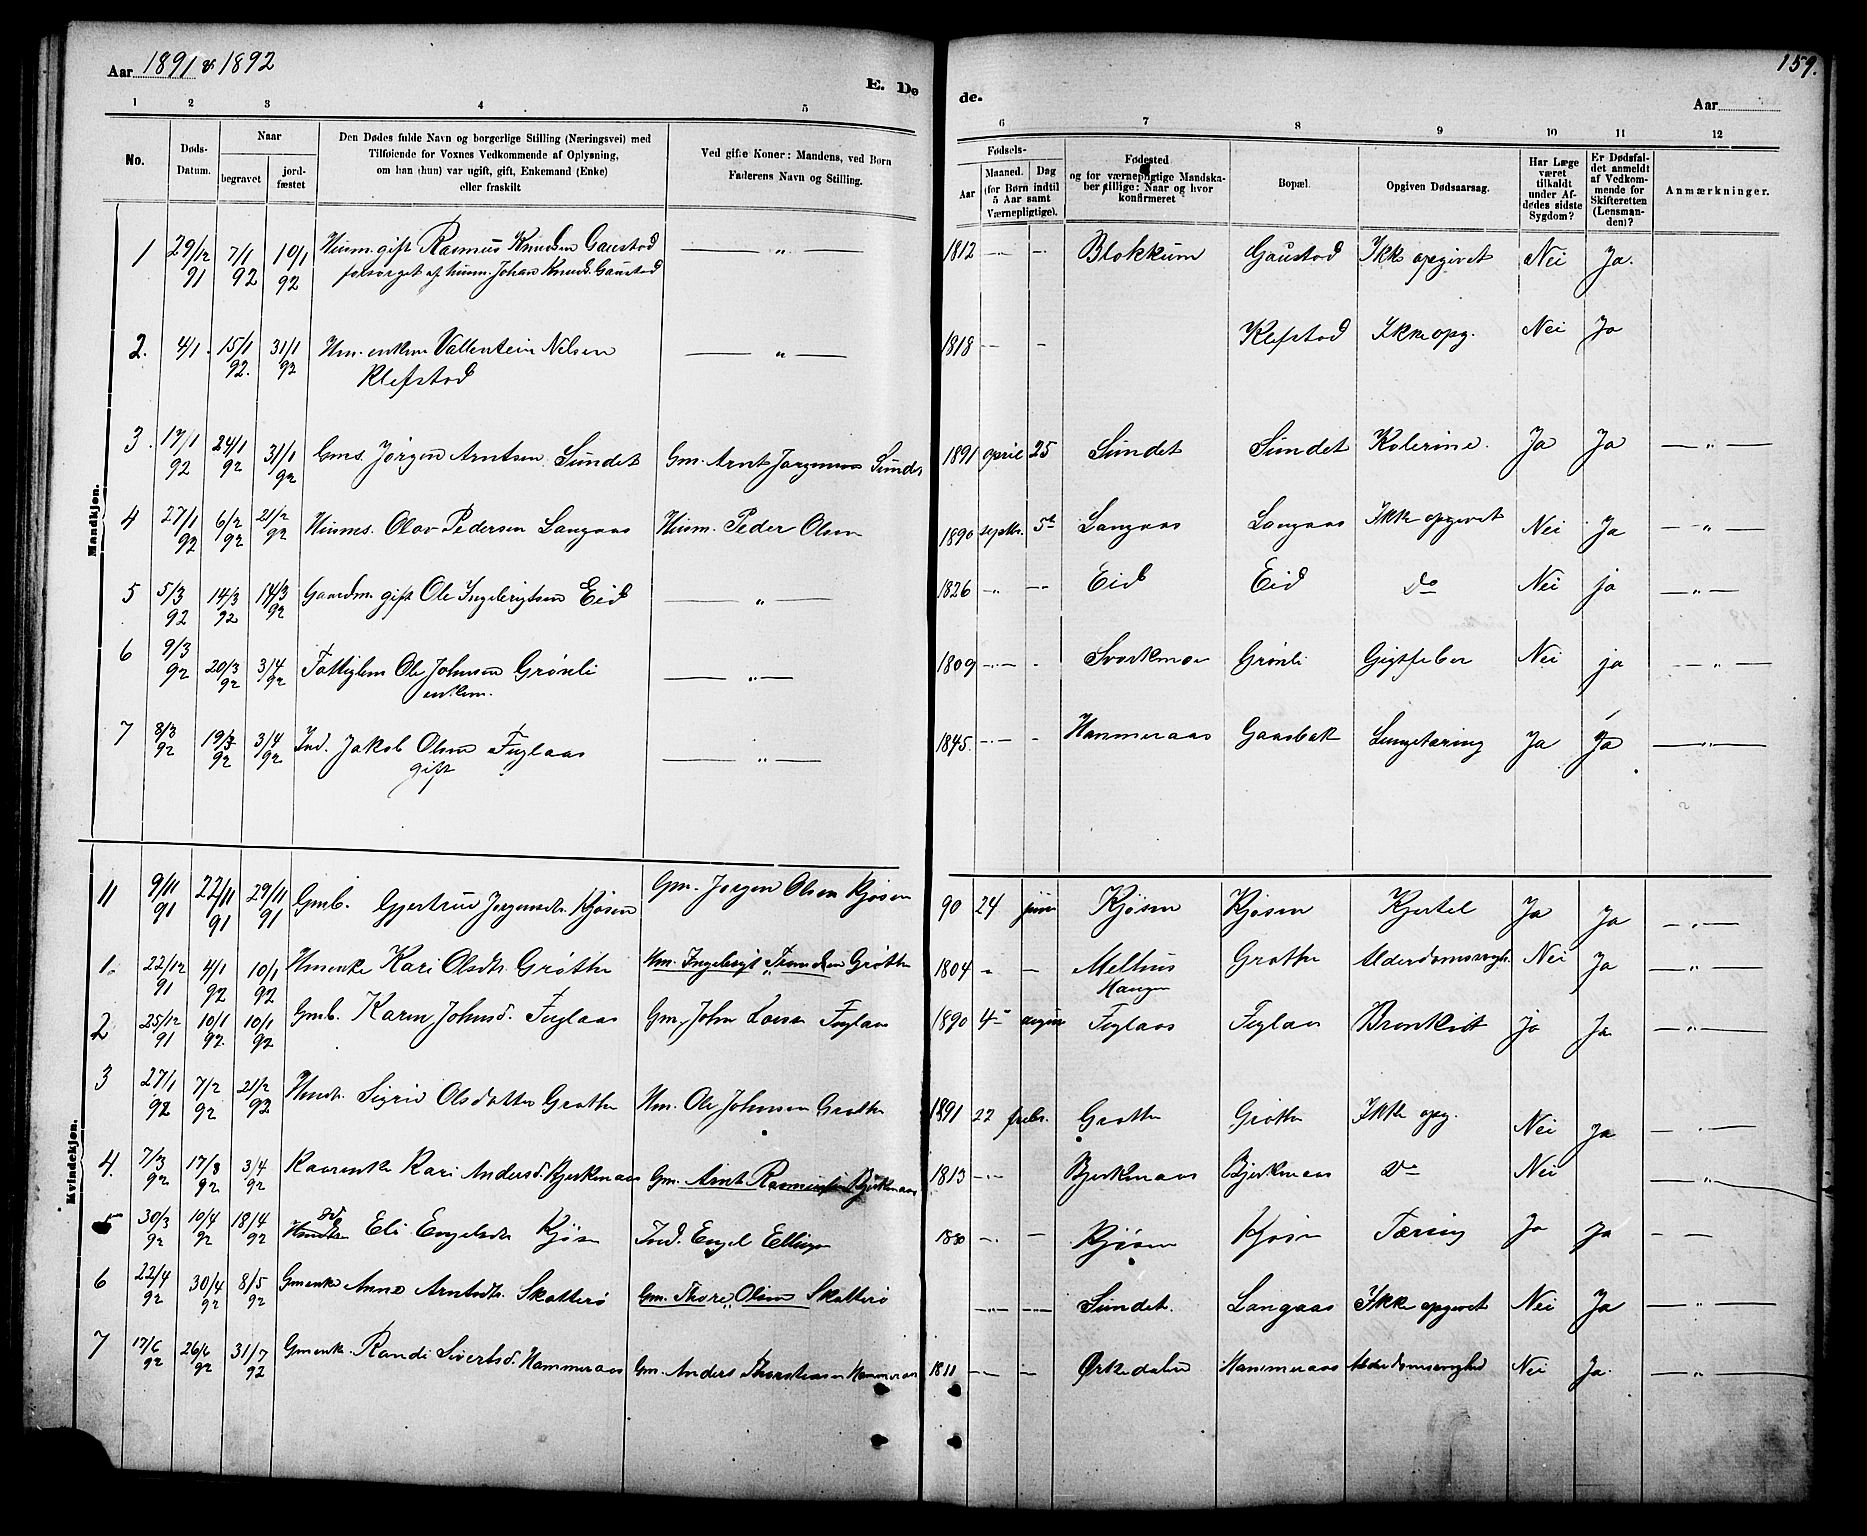 Aar 1891 & 1892
E. Dø
de.
159.
Aar
1 2 3 4 5 6 7 8 9 10 11 12
No.
Døds-Datum.
Naar
begravet
jord-fæstet
Den Dødes fulde Navn og borgerlige Stilling (Næringsvei) med
Tilføiende for Voxnes Vedkommende af Oplysning,
om han (hun) var ugift, gift, Enkemand (Enke)
eller fraskilt
Ved gifte Koner: Mandens, ved Børn
Faderens Navn og Stilling.
Fødsels-
Aar
Maaned. Dag
(for Børn indtil
5 Aar samt
Værnepligtige).
Fødested
og for værnepligtige Mandska-
ber tillige: Naar og hvor
konfirmeret
Bopæl.
Opgiven Dødsaarsag.
Har Læge
været
tilkaldt
under Af-
dødes sidste
Sygdom?
Er Dødsfal-
det anmeldt
af Vedkom-
mende for
Skifteretten
(Lensman-
den)?
Anmærkninger.
Mandkjøn.
1 29/12 91 7/1 92 10/1 92 Husm. gift Rasmus Knudsen Gaustad — " — 1812 Blokkum Gaustad Ikke opgivet Nei Ja.
forsørget af husm. Johan Knuds. Gaustad
2. 4/1. 15/1 92. 31/1 92 Hm. enkem Vallentein Nilsen — " — 1818 Klefstad Ikke opg. Nei Ja
Klefstad
3. 17/1 92 24/1 92 31/1 92 Gms. Jörgen Arntsen Sundet Gm. Arnt Jørgensen 1891 april 25 Sundet Sundet Kolerine. Ja Ja — " —
4 27/1 92 6/2 92 21/2 92 Husms. Olav Pedersen Langaas Husm. Peder Olsen 1890 septbr. 5te Langaas Langaas Ikke opgivet Nei Ja — " —
5 5/3 92 14/3 92 14/3 92 Gaardm. gift Ole Ingebrigtsen Eid — " — 1826 Eid Eid do Nei ja — " —
6 9/3 92 20/3 92 3/4 92 Fattiglem Ole Johnsen Grönli — " — 1809 Svorkmoe Grönli Gigtfeber Nei ja — " —
enkem.
7 8/3 92 19/3 92 3/4 92 Ind. Jakob Olsen Fuglaas — " — 1845. Hammeraas Gaasbak Lungetæring Ja Ja — " —
gift
Kvindekjøn.
11 9/11 91 22/11 91 29/11 91 Gmb. Gjertrud Jørgensdtr. Kjösen Gm. Jørgen Olsen Kjösen 90 24 juni Kjösen Kjösen Kjertel Ja Ja — " —
1. 22/12 91 4/1 92 10/1 92 Hmenke Kari Olsdtr. Gröthe Hm. Ingebrigt Gröthe 1804 Melhus Grøthe Alderdomssvagh. Nei Ja — " —
2 25/12 91 10/1 92. 10/1 92 Gmb. Karen Johnsd. Fuglaas Gm. John Larsen Fuglaas 1890 4de august Fuglaas Fuglaas Bronkit ja Ja — " —
3 27/1 92 7/2 92 21/2 92 Hmdtr. Sigrid Olsdatter Grøthe Hm. Ole Johnsen Grøthe 1891 22 febr. Grøthe Grøthe Ikke opg. Nei Ja — " —
4. 7/3 92 17/3 92 3/4 92 Kaarenke Kari Andersd. Bjerkmaas Gm. Arnt Rasmussen Bjerkmaas 1813 Bjerkmaas Bjerkmaas do Nei "
5 30/3 92 10/4 92 18/4 92 Eli Engelsdtr Kjösen Ind. Engel Ellingsen Kjösen Kjösen Tæring Ja Ja — —
6 22/4 92 30/4 92 8/5 92 Gmenke Anne Arntsdtr. Skatterö Gm. Thore Olsen Skatterö Sundet. Langaas Ikke opgivet Nei Ja — " —
7 17/6 92 26/6 92 31/7 92 Gmenk. Randi Sivertsd. Hammeraas Gm. Anders Thorsteinsen Hammeraas 1811 Ørkedalen Hammeraas Alderdomssvaghed Nei Ja. — " —